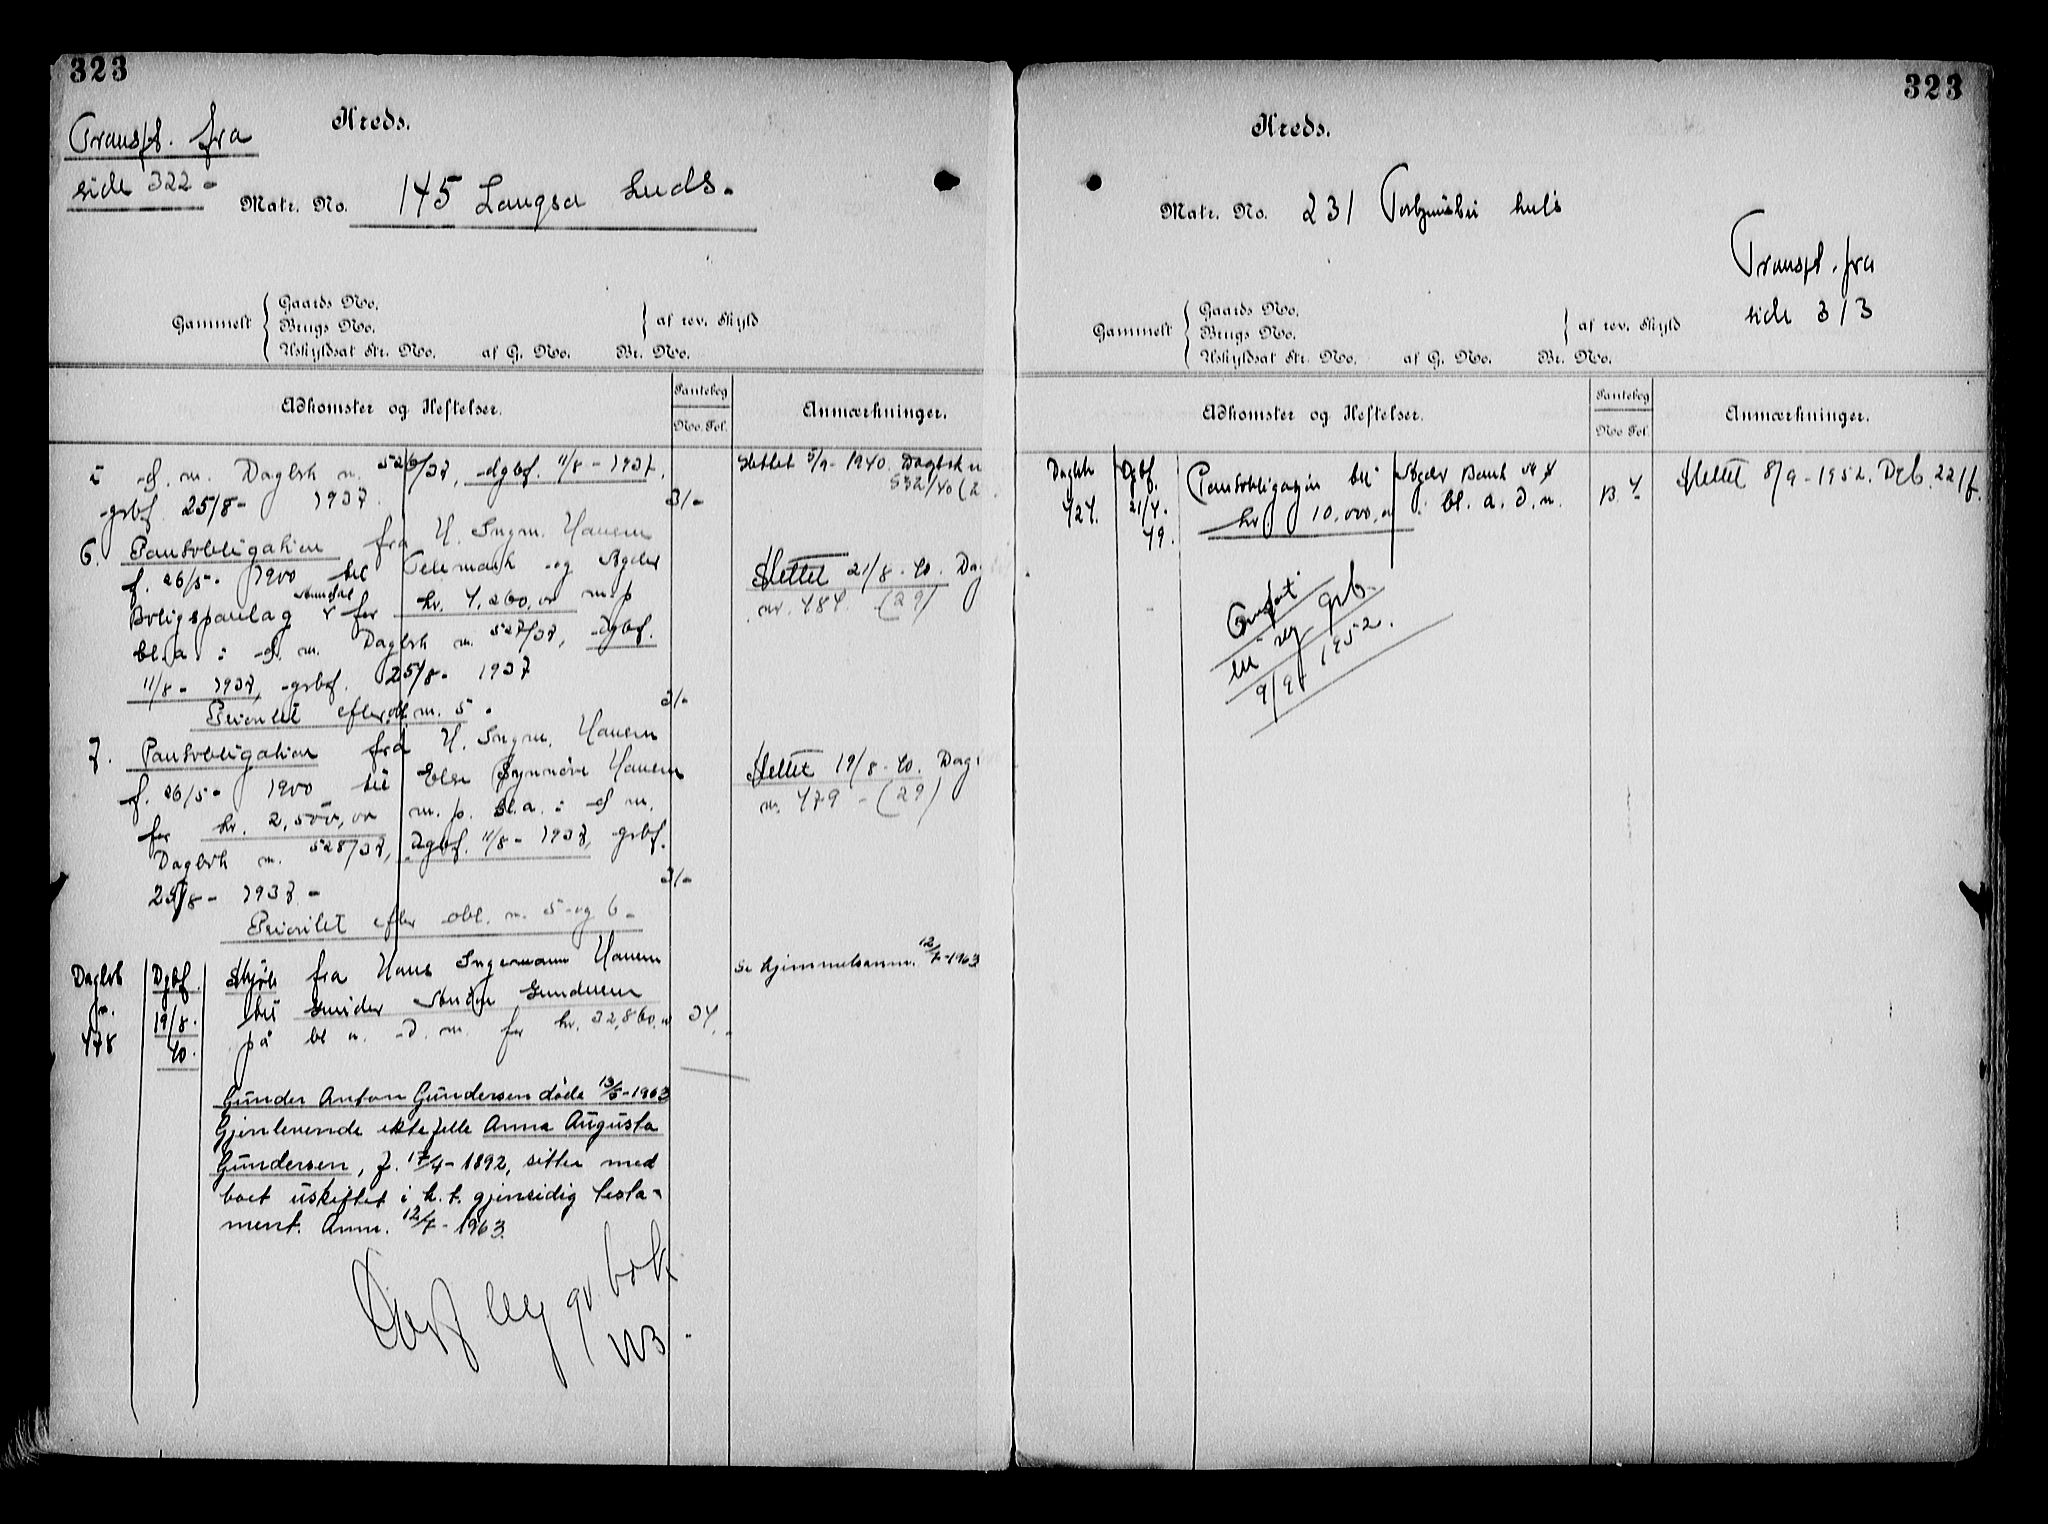 323
Transp. fra
side 322
Kreds.
Matr. No. 145 Langsæ huds.
Gammelt
Gaards No.
Brugs No.
Uskyldsat Str. No. af G. No. Br. No.
af rev. Skyld
Adkomster og Heftelser.
Pantebog
No. Fol.
Anmærkninger.
d. nr. Dagbok nr. 526/37, dgbf. 11/8-1937.
grbf. 25/8- 1937
31-
Slettet 5/9-1940. Dagbok n
532/40 (2
6. Pantobligation fra H. Ingm. Hansen
f. 26/5- 1900 til Telemark og Agder
for kr. 4,260,00 m. p.
bl. a. i d. nr. Dagbok nr. 527/37, dgbf.
11/8- 1937, grbf. 25/8- 1937
Prioritet efter obl. nr. 5.
31-
Slettet 21/8-40. Dag
nr. 484. (29)
7. Pantobligation fra H. Ingm. Hansen
f. 26/5- 1900 til Else Synnøve Hansen
for kr. 2,500,00 m. p. bl. a. i d. nr.
Dagbok nr. 528/37, Dgbf. 11/8- 1937, grbf.
25/8- 1937-
31-
Prioritet efter obl. nr. 5 og 6-
Slettet 19/8-40. Dag
nr. 479- (29)
Dagbok
n.
478
Dgbf.
19/8.
40.
Skjøte fra Hans Ingemann Hansen
til Gunder Anton Gundersen
på bl a. d. nr. for kr. 32,860,00
34.
Se hjemmelsanm. 12/7-1963
Gunder Anton Gundersen døde 13/5-1963
Gjenlevende ektefelle Anna Augusta
Gundersen, f. 17/4-1892, sitter med
boet uskiftet i h. t. gjensidig testa-
ment. Anm. 12/7-1963.
323
Kreds.
Matr. No. 231
Transp. fra
side 313
Gammelt
Gaards No.
Brugs No.
Uskyldsat Str. No. af G. No. Br. No.
af rev. Skyld
Adkomster og Heftelser.
Pantebog
No. Fol.
Anmærkninger.
Dagbok
424.
Dgbf.
21/4-
49.
Pantobligasjon til Agder Bank A/S
kr. 10.000,00 bl. a. d. nr.
B 4
Slettet 8/9-1952. Dgb. 221
Omført
til ny grb.
9/9-1952.